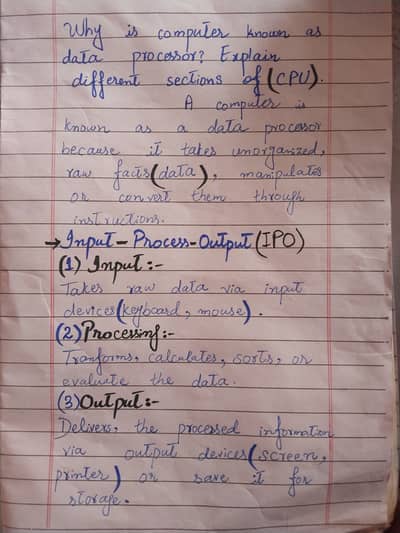 Why is computer known as
data processor? Explain
different sections of (CPU).
A computer is
known as a data processor
because it takes unorganized,
raw facts (data), manipulates
or convert them through
instructions.
→ Input - Process - Output (IPO)
(1) Input :-
Takes raw data via input
devices (keyboard, mouse).
(2) Processing :-
Tranforms, calculates, sorts, or
evaluate the data.
(3) Output :-
Delivers, the processed information
via output devices (screen,
printer) or save it for
storage.